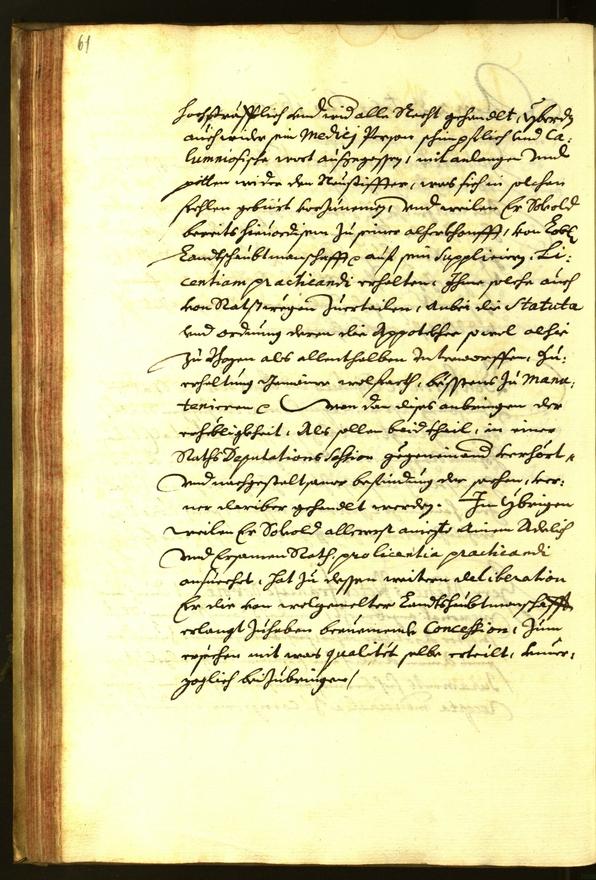 61
hochsträfflich und wid alle Recht gehandelt, Yberdz
auch wider sein Medicj Person schimpflich und Ca:
lumniosische wort außgegossen, mit anlangen und
pitten wider den Neustiffter, was sich in solchen
fehlen gebürt vorzunemen, und weilen Er Sobold
bereits hieuor disem zu seiner alherkhonfft, von Lobl:
Landtshaubtmanschafft auf sein Supplicieren, Li:
centiam practicandi erhalten, Ihme solche auch
von Rats wegen zuerteilen, Anbei die Statuta
und ordnung deren die Appotekher sowol alhie
zu Bozen als allenthalben Unterworffen, zu:
erhaltung gemainer wolfarth, bestens zu manu:
tenieren Wan dan dises anbringen der
erhöbligkheit, Als sollen beid theil, in einer
Raths Deputations Session gegeneinand verhört,
und nachgestaltsamer befindung der sachen, fer:
ner darüber gehandlt werden. Im Ybrigen
weilen Er Sobold allererst anietzt Ainem Adelich
und Ersamen Rath, pro licentia practicandi
ansuechet, hat zu dessen weitern deliberation
Er die von wolgemelter Landtshaubtmanschafft
erlangt zuhaben Concession, zum
ersechen mit was qualitet selbe erteilt,
zoglich beizubringen